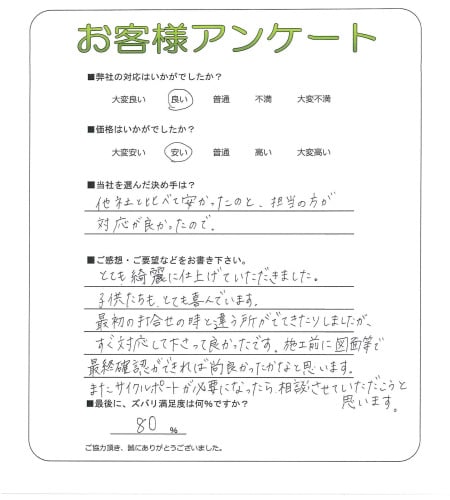 お客様アンケート
■弊社の対応はいかがでしたか？
大変良い 良い 普通 不満 大変不満
■価格はいかがでしたか？
大変安い 安い 普通 高い 大変高い
■当社を選んだ決め手は？
他社と比べて安かったのと、担当の方が
対応が良かったので。
■ご感想・ご要望などをお書き下さい。
とても綺麗に仕上げていただきました。
子供たちも、とても喜んでいます。
最初の打合せの時と違う所がでてきたりしましたが、
すぐ対応して下さって良かったです。施工前に図面等で
最終確認ができれば尚良かったかなと思います。
またサイクルポートが必要になったら、相談させていただこうと
思います。
■最後に、ズバリ満足度は何%ですか？
80 %
ご協力頂き、誠にありがとうございました。